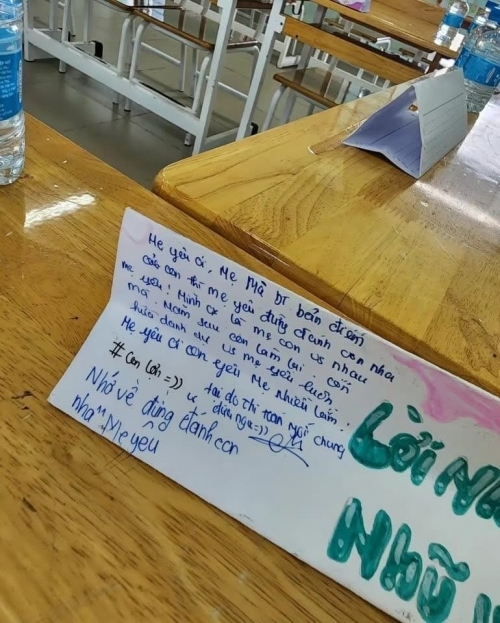 Mẹ yêu ơi, Mẹ Mà bT bản điểm
của con thì mẹ yêu đừng đánh con nha
mẹ yêu! Mình cx là mẹ con vs nhau
mà. Năm sau con làm lại, con
hứa danh dự vs mẹ yêu luôn
Mẹ yêu ơi con yêu Mẹ nhiều lắm!
# Con lợn =)) tại do thi toàn ngồi chung
đứa ngu =))
Nhớ về đừng đánh con
nha "Mẹ yêu
Lời
Nhữ